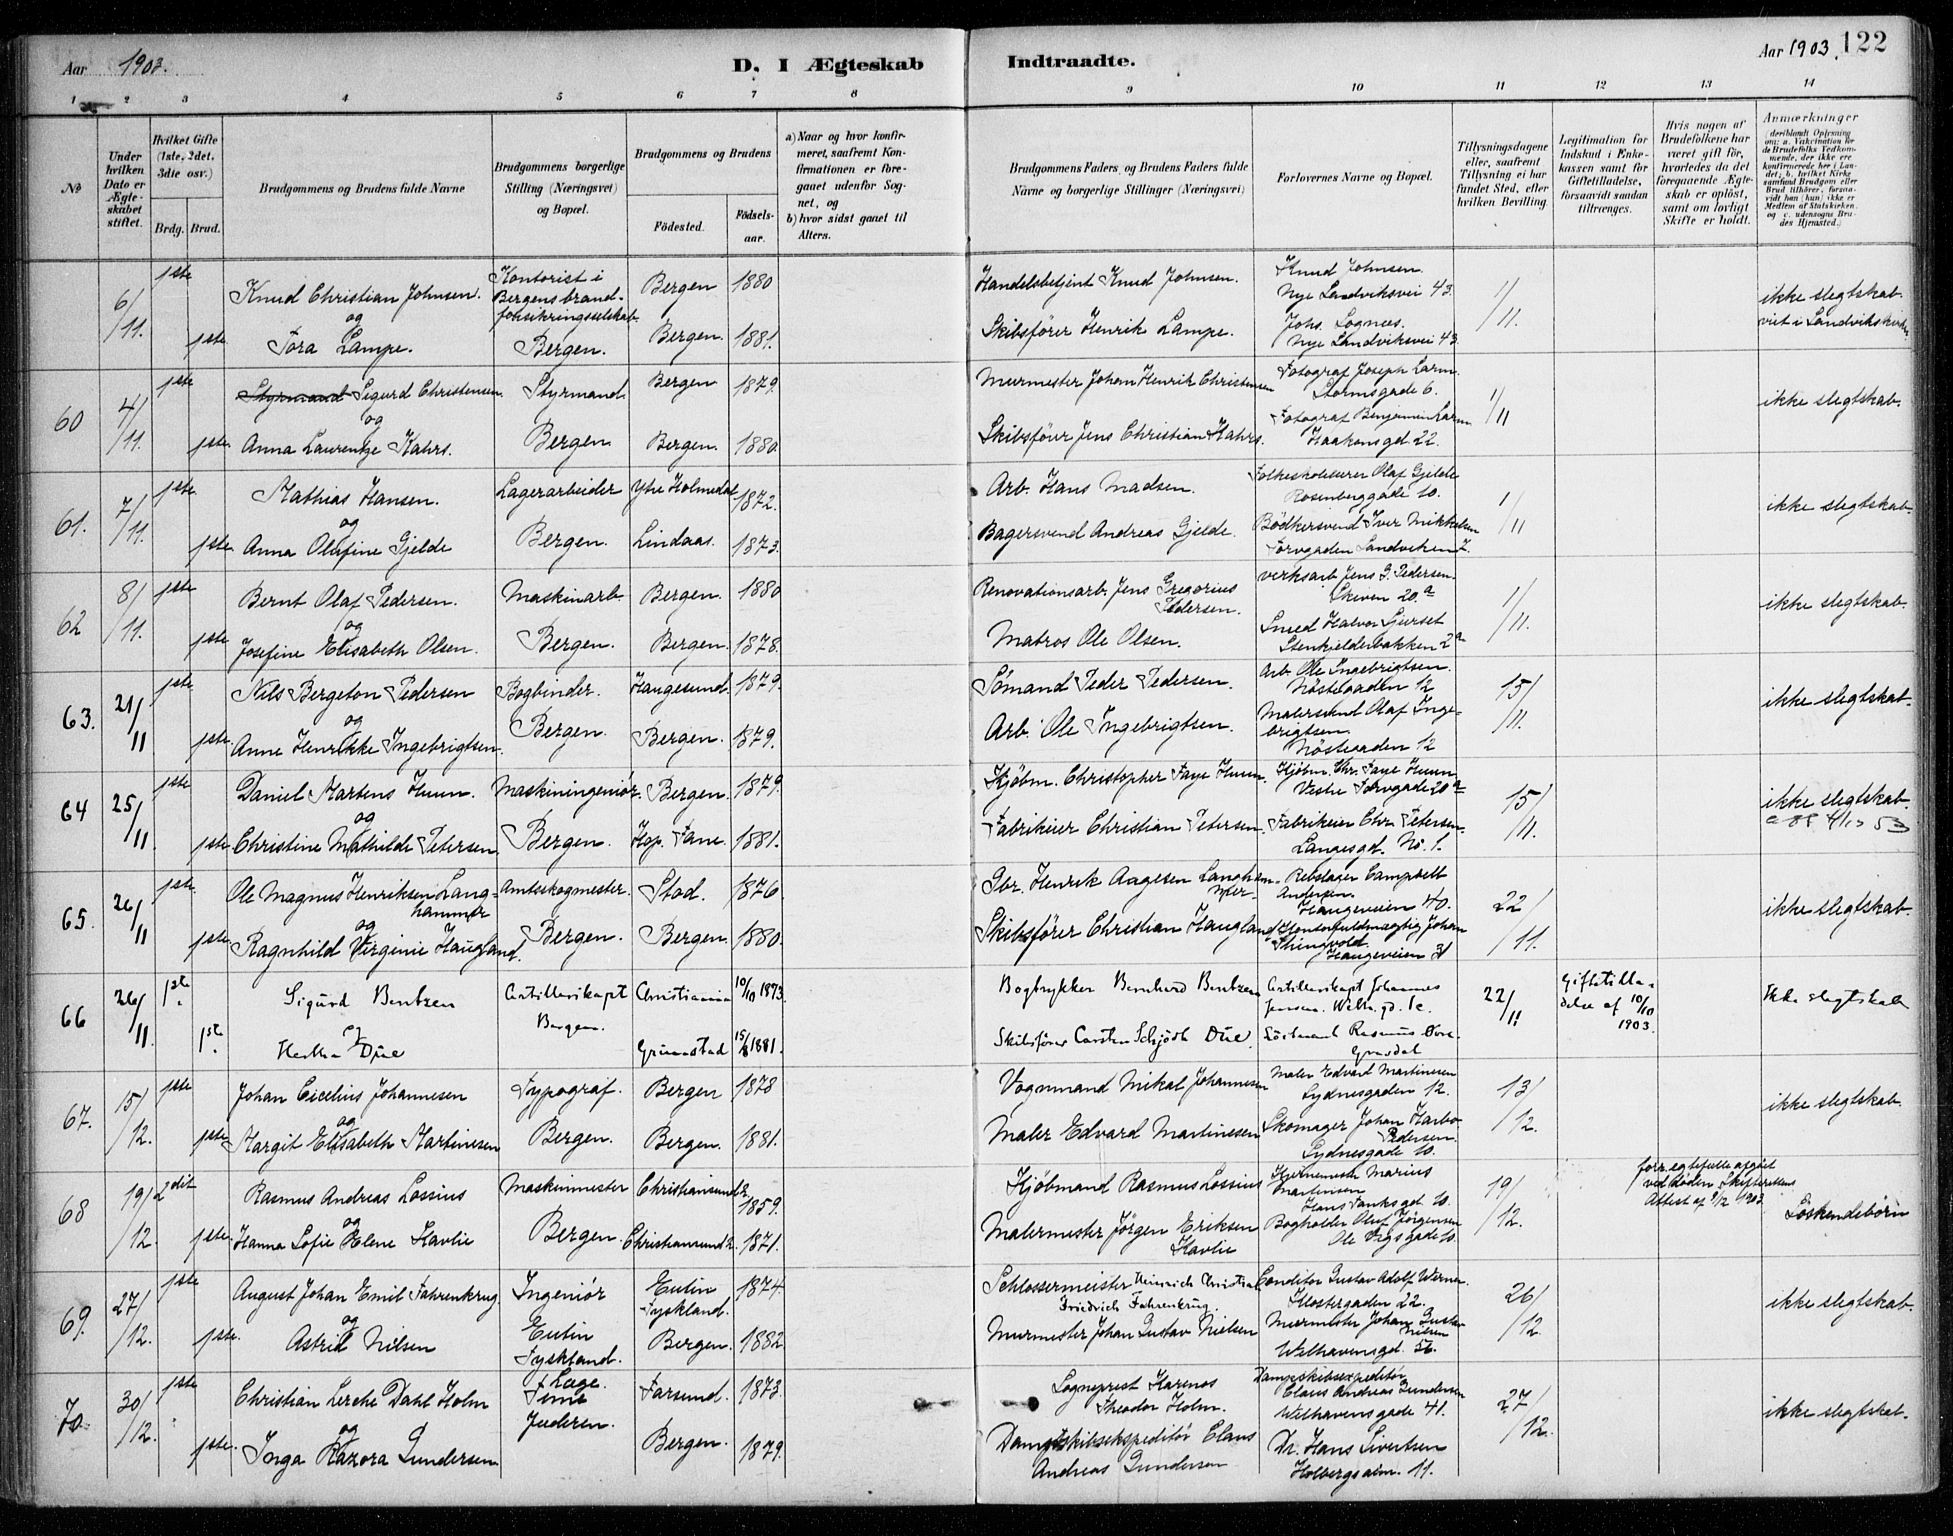 Aar 1903.
D. I Ægteskab Indtraadte.
Aar 1903. 122
1 2 3 4 5 6 7 8 9 10 11 12 13 14
№
Under hvilken Dato er Ægteskabet stiftet.
Hvilket Gifte (1ste, 2det, 3die osv.)
Brdg. Brud.
Brudgommens og Brudens fulde Navne
Brudgommens borgerlige Stilling (Næringsvei) og Bopæl.
Brudgommens og Brudens
Födested. Födsels-aar.
a) Naar og hvor konfirmeret, saafremt Konfirmationen er foregaaet udenfor Sognet, og
b) hvor sidst gaaet til Alters.
Brudgommens Faders og Brudens Faders fulde Navne og borgerlige Stillinger (Næringsvei)
Forlovernes Navne og Bopæl.
Tillysningsdagene eller, saafremt Tillysning ei har fundet Sted, efter hvilken Bevilling.
Legitimation for Indskud i Enkekassen samt for Giftetilladelse, forsaavidt saadan tiltrænges.
Hvis nogen af Brudefolkene har været gift før, hvorledes da det foregaaende Ægteskab er oplöst, samt om lovligt Skifte er holdt.
Anmærkninger
(deriblandt Oplysning om: a. Vakcination for de Brudefolks Vedkommende, der ikke ere konfirmerede her i Landet; b. hvilket Kirkesamfund Brudgom eller Brud tilhörer, forsaavidt han (hun) ikke er Medlem af Statskirken, og c. udensogns Brudes Hjemsted.)
6/11. 1ste Knud Christian Johnsen. Kontorist i Bergens brandforsikringsselskab Bergen 1880 Handelsbetjent Knud Johnsen. Knud Johnsen. Nye Sandviksvei 43. 1/11. ikke slegtskab. viet i Sandvikskirken
og
1ste Tora Lampe. Bergen. Bergen. 1881. Skibsfører Henrik Lampe. Johs. Sognæs. Nye Sandviksvei 43.
60 4/11. 1ste Styrmand Sigurd Christensen Styrmand Bergen 1879. Murmester Johan Henrik Christensen Fotograf Joseph Larm Stormsgade 6. 1/11 ikke slegtskab.
og
1ste Anna Laurentze Kahrs. Bergen Bergen. 1880. Skibsfører Jens Christian Kahrs. Fotograf Benjamin Larm Haakonsgd 22.
61. 7/11. 1ste Mathias Hansen. Lagerarbeider Ytre Holmedal 1872. Arb. Hans Madsen. Folkeskolelærer Olaf Gjelde Rosenberggade 10. 1/11 ikke slegtskab.
og
1ste Anna Olafine Gjelde Bergen. Lindaas. 1873. Bagersvend Andreas Gjelde. Bödkersvend Iver Mikkelsen Torvgaden Sandviken 7.
62 8/11. 1ste Bernt Olaf Pedersen. Maskinarb. Bergen. 1880 Renovationsarb. Jens Gregorius Pedersen. verksarb Jens G. Pedersen. Skiven 20.a 1/11. ikke slegtskab.
og
1ste Josefine Elisabeth Olsen. Bergen. Bergen. 1878. Matros Ole Olsen. Smed Halvor Gjerset Stenkjelderbakken 2a
63. 21/11 1ste Nils Bergeton Pedersen Bogbinder. Haugesund. 1879. Sömand Peder Pedersen. Arb. Ole Ingebrigtsen. Nöstegaden 12 15/11. ikke slegtskab.
og
1ste Anne Henrikke Ingebrigtsen. Bergen. Bergen. 1879. Arb. Ole Ingebrigtsen. Malersvend Olaf Ingebrigtsen. Nöstegaden 12
64 25/11 1ste Daniel Martens Huun. Maskiningeniør. Bergen. 1879. Kjöbm. Christopher Faye Huun. Kjöbm. Chr. Faye Huun Vestre Torvgade 20a 15/11. ikke slegtskab.
og
1ste Christine Mathilde Petersen. Bergen. Hop. Fane. 1881. Fabrikeier Christian Petersen Fabrikeier Chr. Petersen. Langesgd. No. 1.
65. 26/11 1ste Ole Magnus Henriksen Langhammer Amtsskogmester. Stod. 1876 Gbr. Henrik Aagesen Langhammer Rebslager Campbell Andersen. Haugeveien 40. 22/11. ikke slegtskab.
og
1ste Ragnhild Virginie Haugland. Bergen. Bergen. 1880. Skibsfører Christian Haugland Kontorfuldmægtig Johan Haugeveien 31
66 26/11 1ste. Sigurd Bentzen Artillerikapt Bergen. Christiania 10/10 1873. Bogtrykker Bernhard Bentzen Artillerikapt Johannes Jensen. Welh. gd. 1c. 22/11 Giftetilladelse af 10/10 1903. Ikke slegtskab
og
1ste. Hertha Due Grimstad 15/8 1881. Skibsfører Carsten Schjödt Due. Rasmus
67. 15/12. 1ste Johan Cicelius Johannesen Typograf. Bergen 1878 Vognmand Mikal Johannesen Maler Edvard Martinesen Sydnesgaden 12. 13/12. ikke slegtskab.
og
1ste Margit Elisabeth Martinesen Bergen. Bergen. 1881. Maler Edvard Martinesen Skomager Johan Harbo Pedersen. Sydnesgade 10.
68 19/12. 2det Rasmus Andreas Lossius Maskinmester Christiansund N. 1859. Kjöbmand Rasmus Lossius Marius Martinsen Hans Tanksgd 10. 19/12. forr. egtefelle afgået ved døden. Skifterettens Attest af 9/12 1903 Söskendebörn
og
1ste. Hanna Sofie Elene Havlie Bergen. Christiansund N. 1871. Malermester Jörgen Eriksen Havlie Bogholder Oluf Jörgensen Ole Vigsgade 10.
69. 27/12. 1ste August Johan Emil Fahrenkrug. Ingeniør Eutin Tyskland. 1874. Schlossermeister Heinrich Christian Friedrich Fahrenkrug. Conditor Gustav Adolf Werner. Klostergaden 22. 26/12. ikke slegtskab.
og
1ste. Astrid Nilsen Eutin Tyskland. Bergen. 1882 Murmester Johan Gustav Nielsen Murmester Johan Gustav Nilsen Welhavensgd. 56.
70. 30/12. 1ste Christian Lerche Dahl Holm Læge. Time Jæderen. Farsund. 1873. Sogneprest Theodor Holm. Dampskibsexpeditör Claus Andreas Gundersen Welhavensgade 41. 27/12. ikke slegtskab.
og
1ste. Inga Razora Gundersen Bergen. 1879. Dampskibsekspeditör Claus Andreas Gundersen Dr. Hans Sivertsen Holbergsalm. 11.